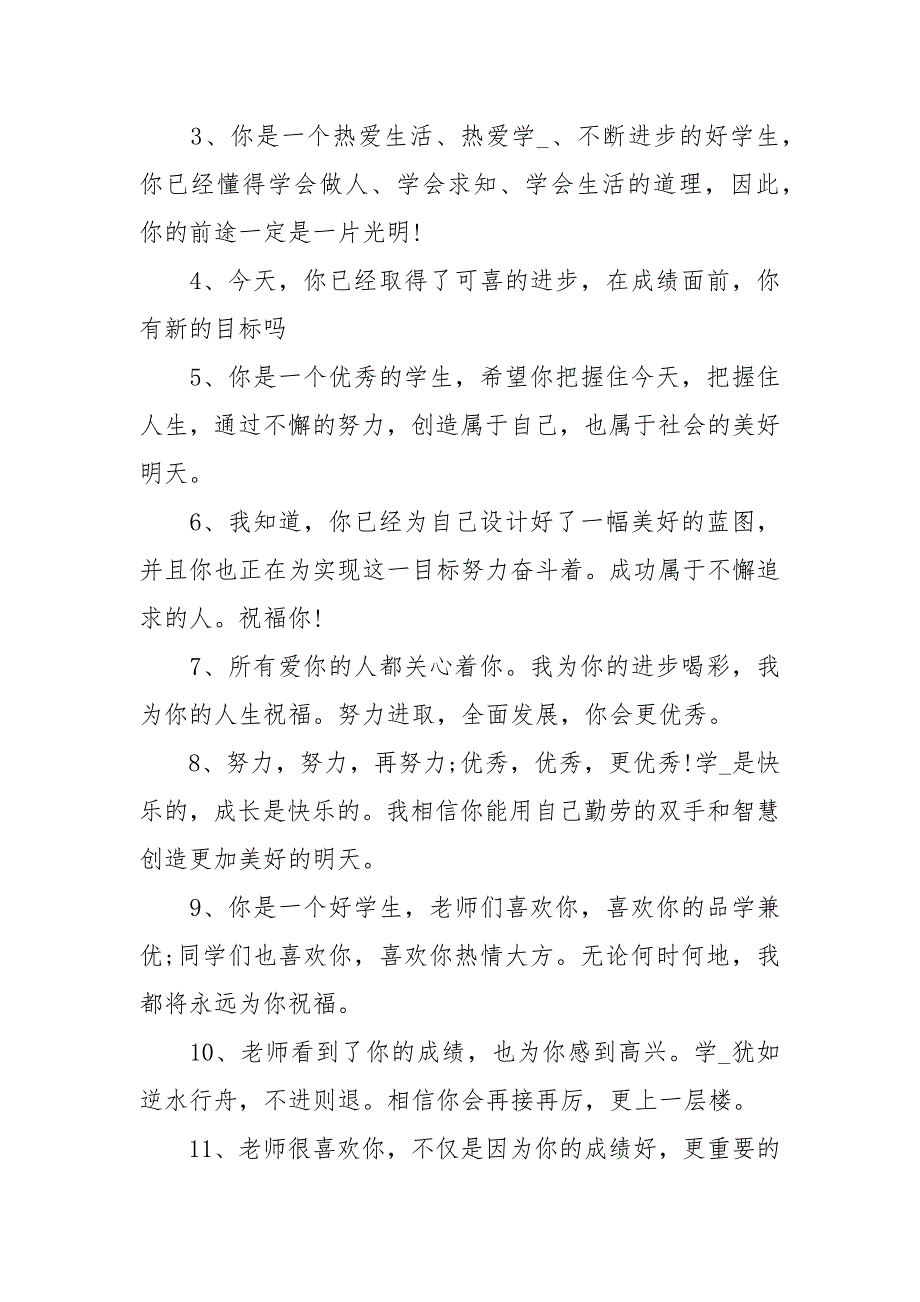 3、你是一个热爱生活、热爱学_、不断进步的好学生，
你已经懂得学会做人、学会求知、学会生活的道理，因此，
你的前途一定是一片光明!
4、今天，你已经取得了可喜的进步，在成绩面前，你
有新的目标吗
5、你是一个优秀的学生，希望你把握住今天，把握住
人生，通过不懈的努力，创造属于自己，也属于社会的美好
明天。
6、我知道，你已经为自己设计好了一幅美好的蓝图，
并且你也正在为实现这一目标努力奋斗着。成功属于不懈追
求的人。祝福你!
7、所有爱你的人都关心着你。我为你的进步喝彩，我
为你的人生祝福。努力进取，全面发展，你会更优秀。
8、努力，努力，再努力;优秀，优秀，更优秀!学_是快
乐的，成长是快乐的。我相信你能用自己勤劳的双手和智慧
创造更加美好的明天。
9、你是一个好学生，老师们喜欢你，喜欢你的品学兼
优;同学们也喜欢你，喜欢你热情大方。无论何时何地，我
都将永远为你祝福。
10、老师看到了你的成绩，也为你感到高兴。学_犹如
逆水行舟，不进则退。相信你会再接再厉，更上一层楼。
11、老师很喜欢你，不仅是因为你的成绩好，更重要的